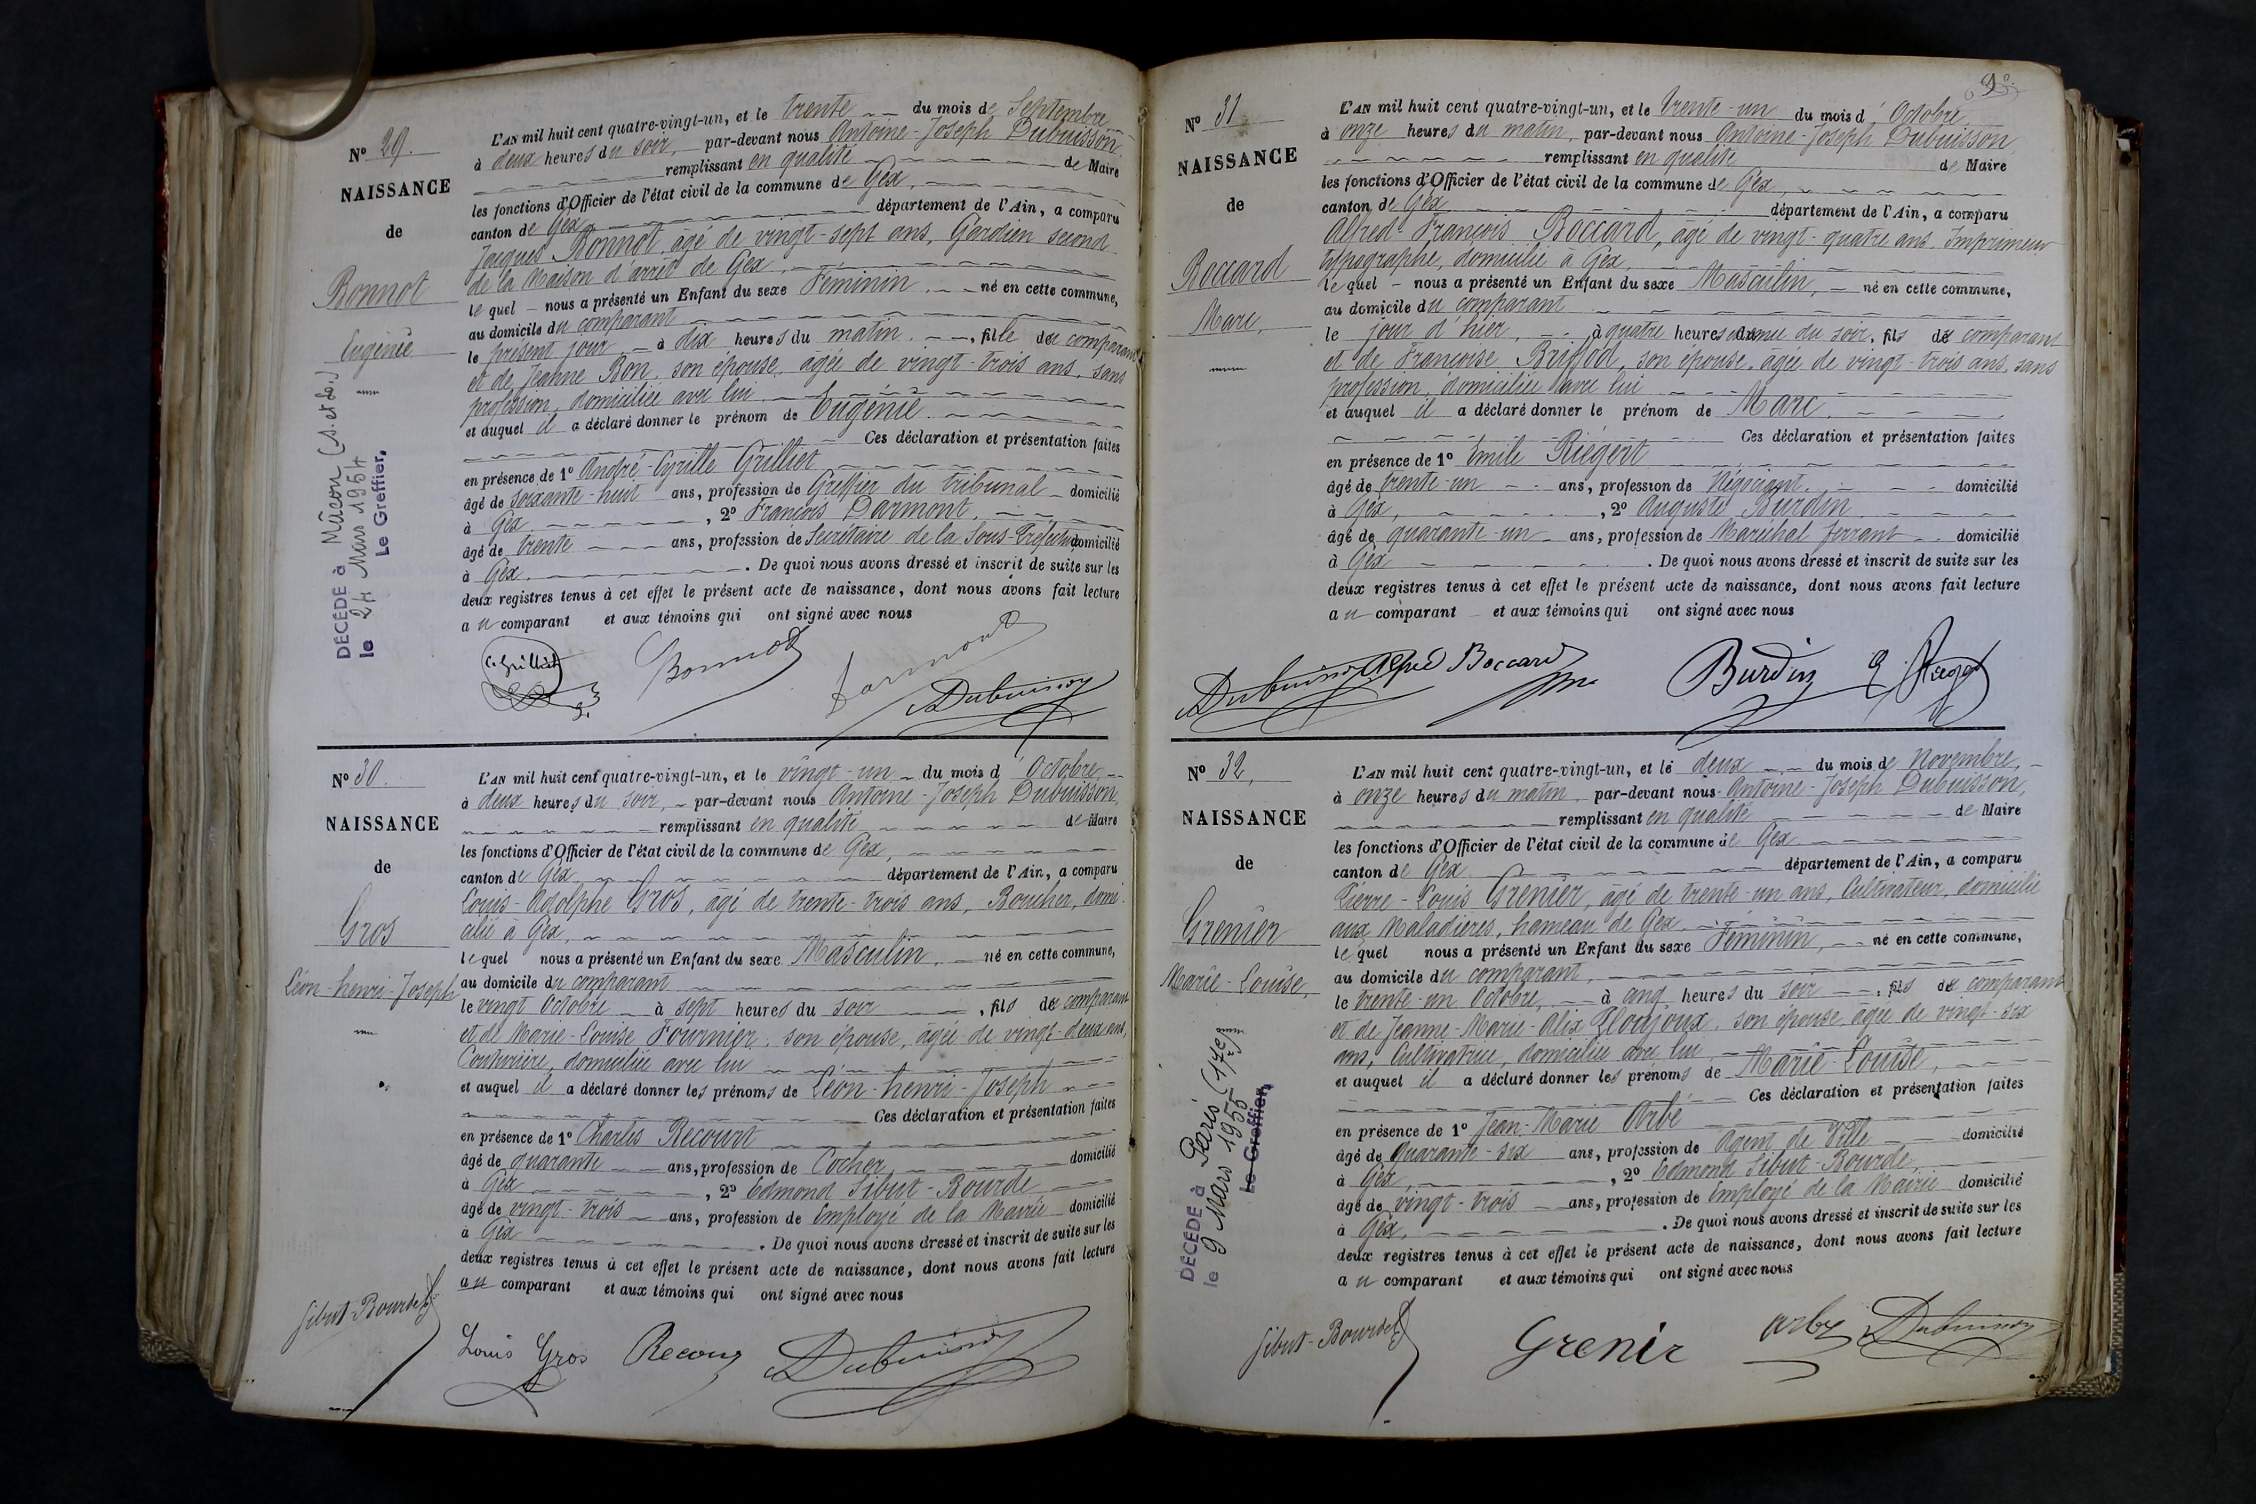 N° 29.
NAISSANCE
de
Bonnot
Eugénie
DÉCÉDÉ à Mâcon (S. et L.)
le 24 Mars 1954
Le Greffier,
L'AN mil huit cent quatre-vingt-un, et le trente du mois de Septembre
à deux heures du soir, par-devant nous Antoine-Joseph Dubuisson
remplissant en qualité de Maire
les fonctions d'Officier de l'état civil de la commune de Gex,
canton de Gex département de l'Ain, a comparu
Jacques Bonnot, âgé de vingt-sept ans, Gardien second
de la Maison d'arrêt de Gex,
lequel nous a présenté un Enfant du sexe Féminin, né en cette commune,
au domicile du comparant
le présent jour à dix heures du matin, fille du comparant
et de Jeanne Bon, son épouse, âgée de vingt-trois ans, sans
profession, domiciliée avec lui
et auquel il a déclaré donner le prénom de Eugénie.
Ces déclaration et présentation faites
en présence de 1° André-Cyrille Grilliet
âgé de soixante-huit ans, profession de Greffier du tribunal domicilié
à Gex, 2° François Darmont,
âgé de trente ans, profession de Secrétaire de la Sous-Préfecture domicilié
à Gex. De quoi nous avons dressé et inscrit de suite sur les
deux registres tenus à cet effet le présent acte de naissance, dont nous avons fait lecture
au comparant et aux témoins qui ont signé avec nous
C. Grilliet Bonnot Darmont
Dubuisson
N° 30.
NAISSANCE
de
Gros
Léon-henri-Joseph
L'AN mil huit cent quatre-vingt-un, et le vingt-un du mois d'Octobre
à deux heures du soir, par-devant nous Antoine-Joseph Dubuisson,
remplissant en qualité de Maire
les fonctions d'Officier de l'état civil de la commune de Gex,
canton de Gex département de l'Ain, a comparu
Louis-Adolphe Gros, âgé de trente-trois ans, Boucher, domi-
cilié à Gex,
lequel nous a présenté un Enfant du sexe Masculin, né en cette commune,
au domicile du comparant
le vingt Octobre à sept heures du soir, fils du comparant
et de Marie-Louise Fournier, son épouse, âgée de vingt-deux ans,
Couturière, domiciliée avec lui
et auquel il a déclaré donner les prénoms de Léon-henri-Joseph
Ces déclaration et présentation faites
en présence de 1° Charles Recourt
âgé de quarante ans, profession de Cocher domicilié
à Gex, 2° Edmond Sibut-Bourde
âgé de vingt-trois ans, profession de Employé de la Mairie domicilié
à Gex. De quoi nous avons dressé et inscrit de suite sur les
deux registres tenus à cet effet le présent acte de naissance, dont nous avons fait lecture
au comparant et aux témoins qui ont signé avec nous
Sibut-Bourde Louis Gros Recour Dubuisson
N° 31
NAISSANCE
de
Boccard
Marc,
L'AN mil huit cent quatre-vingt-un, et le trente-un du mois d'Octobre
à onze heures du matin, par-devant nous Antoine-Joseph Dubuisson
remplissant en qualité de Maire
les fonctions d'Officier de l'état civil de la commune de Gex,
canton de Gex département de l'Ain, a comparu
Alfred-François Boccard, âgé de vingt-quatre ans, Imprimeur
typographe, domicilié à Gex
lequel nous a présenté un Enfant du sexe Masculin, né en cette commune,
au domicile du comparant
le jour d'hier, à quatre heures du soir, fils du comparant
et de Françoise Brifod, son épouse, âgée de vingt-trois ans, sans
profession, domiciliée avec lui
et auquel il a déclaré donner le prénom de Marc.
Ces déclaration et présentation faites
en présence de 1° Emile Riegert
âgé de trente-un ans, profession de Négociant, domicilié
à Gex, 2° Auguste Burdin
âgé de quarante-un ans, profession de Maréchal ferrant domicilié
à Gex. De quoi nous avons dressé et inscrit de suite sur les
deux registres tenus à cet effet le présent acte de naissance, dont nous avons fait lecture
au comparant et aux témoins qui ont signé avec nous
Dubuisson Alfred Boccard Burdin
N° 32,
NAISSANCE
de
Grenier
Marie-Louise,
DÉCÉDÉ à Paris (17e)
le 9 Mars 1955
Le Greffier,
L'AN mil huit cent quatre-vingt-un, et le deux du mois de Novembre,
à onze heures du matin par-devant nous Antoine-Joseph Dubuisson,
remplissant en qualité de Maire
les fonctions d'Officier de l'état civil de la commune de Gex
canton de Gex département de l'Ain, a comparu
Pierre-Louis Grenier, âgé de trente-un ans, Cultivateur, domicilié
aux Maladières, hameau de Gex,
lequel nous a présenté un Enfant du sexe Féminin, né en cette commune,
au domicile du comparant,
le trente-un Octobre, à cinq heures du soir, fils du comparant
et de Jeanne-Marie-Alix Ploujoux, son épouse, âgée de vingt-six
ans, Cultivatrice, domiciliée avec lui,
et auquel il a déclaré donner les prénoms de Marie-Louise,
Ces déclaration et présentation faites
en présence de 1° Jean-Marie Arbé
âgé de quarante-six ans, profession de Agent de Ville domicilié
à Gex, 2° Edmond Sibut-Bourde,
âgé de vingt-trois ans, profession de Employé de la Mairie domicilié
à Gex, De quoi nous avons dressé et inscrit de suite sur les
deux registres tenus à cet effet le présent acte de naissance, dont nous avons fait lecture
au comparant et aux témoins qui ont signé avec nous
Sibut-Bourde Grenir Arbé Dubuisson